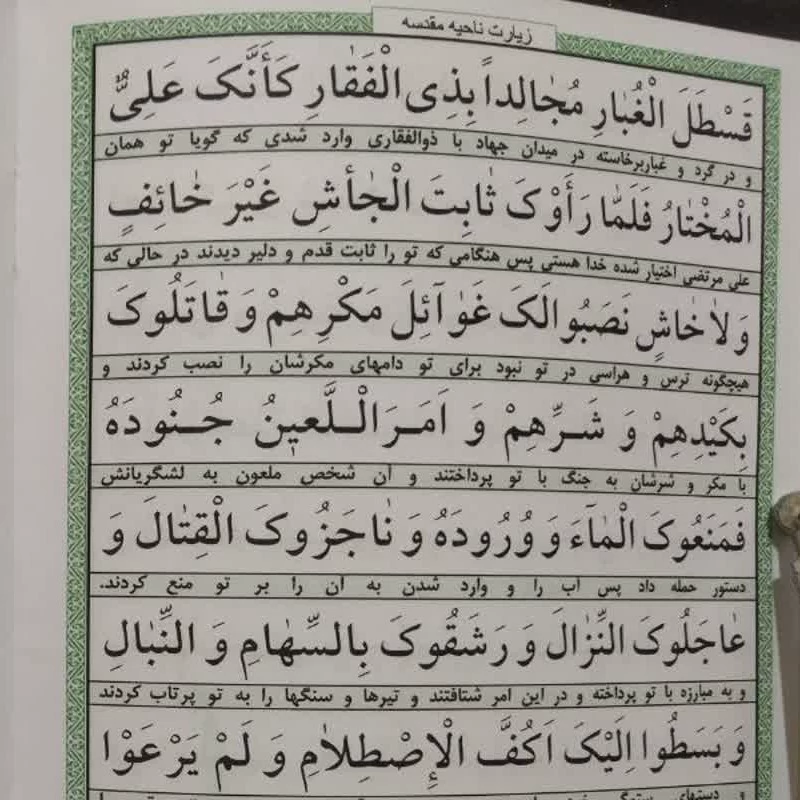 زیارت ناحیه مقدسه
قَسْطَلَ الْغُبٰارِ مُجٰالِداً بِذِی الْفَقٰارِ کَأَنَّکَ عَلِیٌّ
و در گرد و غباربرخاسته در میدان جهاد با ذوالفقاری وارد شدی که گویا تو همان
الْمُخْتٰارُ فَلَمّٰا رَأَوْکَ ثٰابِتَ الْجٰأشِ غَیْرَ خٰائِفٍ
علی مرتضی اختیار شده خدا هستی پس هنگامی که تو را ثابت قدم و دلیر دیدند در حالی که
وَلاٰخٰاشٍ نَصَبُوالَکَ غَوٰآئِلَ مَکْرِهِمْ وَ قٰاتَلُوکَ
هیچگونه ترس و هراسی در تو نبود برای تو دامهای مکرشان را نصب کردند و
بِکَیْدِهِمْ وَ شَـرِّهِمْ وَ اَمَـرَ الْـلَّعینُ جُـنُودَهُ
با مکر و شرشان به جنگ با تو پرداختند و آن شخص ملعون به لشگریانش
فَمَنَعُوکَ الْمٰآءَ وَ وُرُودَهُ وَ نٰاجَزُوکَ الْقِتٰالَ وَ
دستور حمله داد پس آب را و وارد شدن به آن را بر تو منع کردند.
عٰاجَلُوکَ النِّزٰالَ وَ رَشَقُوکَ بِالسِّهٰامِ وَ النِّبٰالِ
و به مبارزه با تو پرداخته و در این امر شتافتند و تیرها و سنگها را به تو پرتاب کردند
وَ بَسَطُوا اِلَیْکَ اَکُفَّ الْاِصْطِلاٰمِ وَ لَمْ یَرْعَوْا
و دستهای